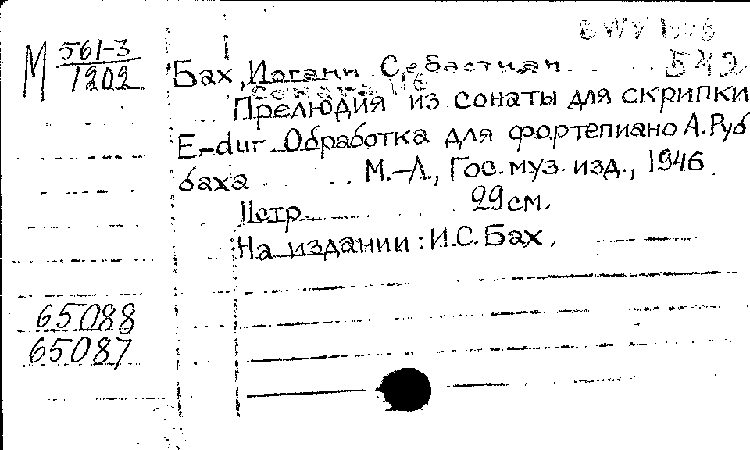 BWV
М 561-3
1202
Бах, Иоганн Себастиан
Соната
Прелюдия из сонаты для скрипки
E-dur Обработка для фортепиано А. Руб
баха М.-Л., Гос. муз. изд., 1946.
11 стр. 29 см.
На издании: И.С. Бах.
65088
65087